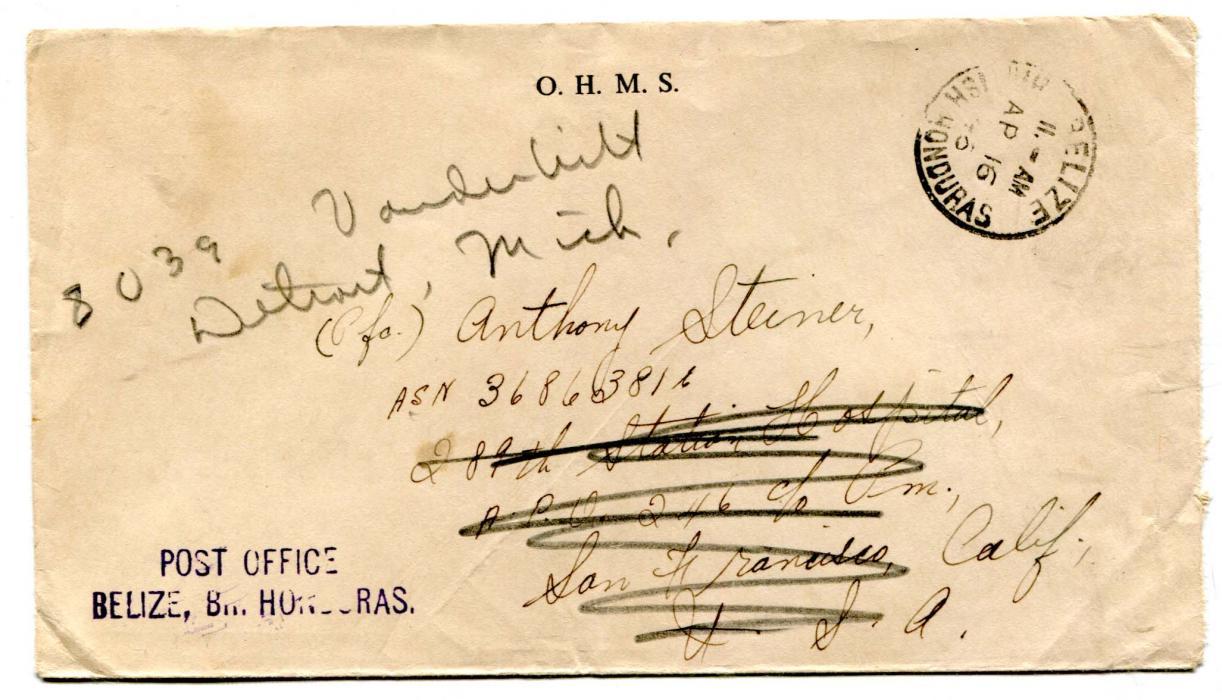 O. H. M. S.
BELIZE
HONDURAS
11.-AM
AP 16
8039 Vanderbilt
Detroit, Mich.
(Pfc.) Anthony Steiner,
ASN 36863816
289th Station Hospital,
A.P.O. 246 c/o Pm.,
San Francisco, Calif.,
U. S. A.
POST OFFICE
BELIZE, BR. HONDURAS.